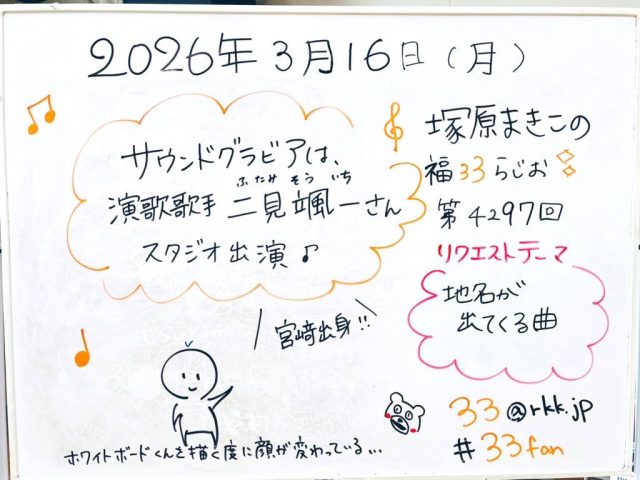 2026年3月16日(月)
サウンドグラビアは、
ふたみ そう いち
演歌歌手 二見颯一さん
スタジオ出演♪
塚原まきこの
福33らじお
第4297回
リクエストテーマ
地名が
出てくる曲
宮崎出身!!
33@rkk.jp
#33fan
ホワイトボードくんを描く度に顔が変わっている…